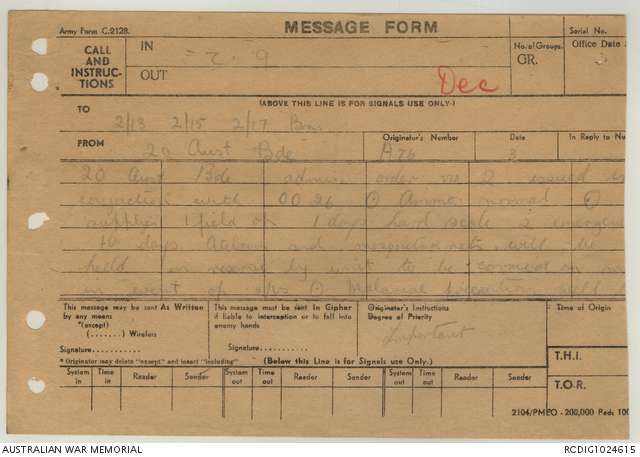 Army Form C.2128.
MESSAGE FORM
Serial No.
CALL
AND
INSTRUC-
TIONS
IN
OUT
No. of Groups.
GR.
Office Date
Dec
(ABOVE THIS LINE IS FOR SIGNALS USE ONLY.)
TO
2/13 2/15 2/17 Bns
FROM
Originator's Number
Date
In Reply to Nu
20 Aust Bde
A76
3
20 Aust Bde admin order No 2 issued
conjunction with OO 26 Ammo normal
supplies 1 field 1 days hard scale 2 emergenc
10 days Atebrin and mosquito nets will be
held in reserve by unit to be
event of Malaria precaution
This message may be sent As Written
by any means
*(except)
(........) Wireless
Signature
This message must be sent In Cipher
if liable to interception or to fall into
enemy hands
Signature
Originator's Instructions
Degree of Priority
Important
Time of Origin
T.H.I.
T.O.R.
* Originator may delete "except" and insert "including"
(Below this Line is for Signals use Only.)
System in
Time in
Reader
Sender
System out
Time out
Reader
Sender
System out
Time out
Reader
Sender
2104/PMEO - 200,000 Pads 100
AUSTRALIAN WAR MEMORIAL
RCDIG1024615